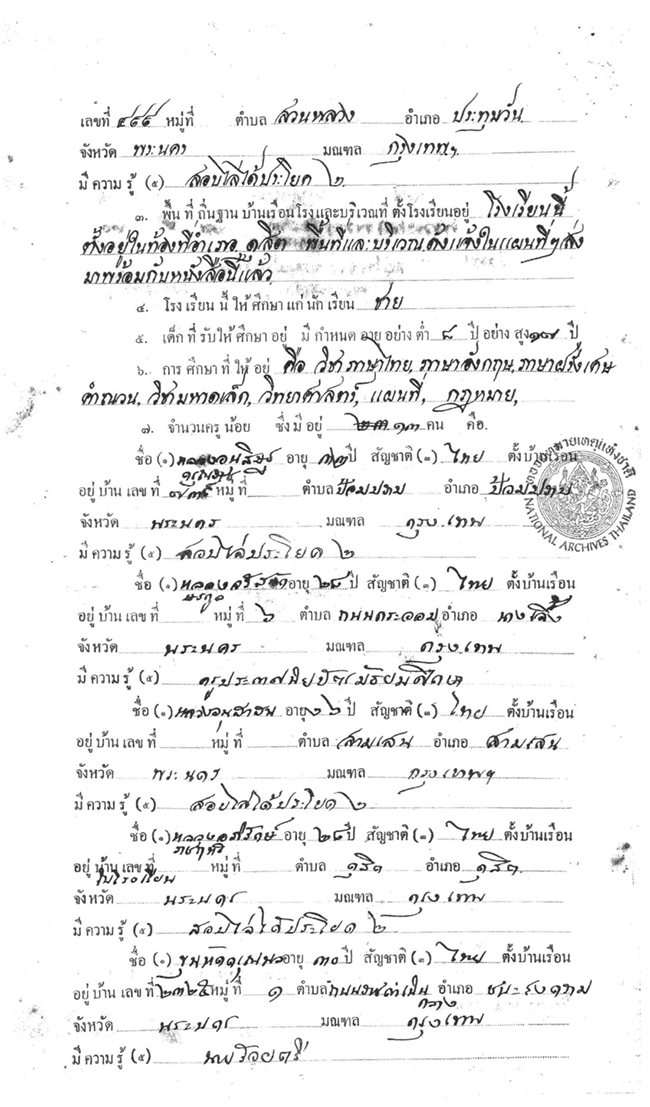 เลขที่ ๔๙๙ หมู่ที่ ตำบล สวนหลวง อำเภอ ประทุมวัน
จังหวัด พระนคร มณฑล กรุงเทพฯ
มี ความ รู้ (๕) สอบไล่ได้ประโยค ๒
๓. พื้น ที่ ถิ่นฐาน บ้านเรือนโรงและบริเวณที่ ตั้งโรงเรียนอยู่ โรงเรียนนี้
ตั้งอยู่ในท้องที่อำเภอ ดุสิต พื้นที่และบริเวณดังแจ้งในแผนที่ฯส่ง
มาพร้อมกับหนังสือนี้แล้ว
๔. โรง เรียน นี้ ให้ ศึกษา แก่ นัก เรียน ชาย
๕. เด็ก ที่ รับให้ ศึกษา อยู่ มี กำหนด อายุ อย่าง ต่ำ ๘ ปี อย่าง สูง ๑๗ ปี
๖. การ ศึกษา ที่ ให้ อยู่ คือ วิชาภาษาไทย, ภาษาอังกฤษ, ภาษาฝรั่งเศษ
คำณวน, วิชามหาดเล็ก, วิทยาศาสตร์, แผนที่, กฎหมาย,
๗. จำนวนครู น้อย ซึ่งมี อยู่ ๑๓ คน คือ.
ชื่อ (๑) หลวง อายุ ๓๓ ปี สัญชาติ (๓) ไทย ตั้งบ้านเรือน
อยู่ บ้าน เลข ที่ หมู่ ที่ ตำบล ป้อมปราบ อำเภอ ป้อมปราบ
จังหวัด พระนคร มณฑล กรุงเทพ
มี ความ รู้ (๕) สอบไล่ประโยค ๒
ชื่อ (๑) หลวง อายุ ๒๘ ปี สัญชาติ (๓) ไทย ตั้งบ้านเรือน
อยู่ บ้าน เลข ที่ หมู่ ที่ ๖ ตำบล ถนน อำเภอ นางเลิ้ง
จังหวัด พระนคร มณฑล กรุงเทพ
มี ความ รู้ (๕) ครูประกาศนียบัตร์มัธยมศึกษา
ชื่อ (๑) หลวง อายุ ๖ ปี สัญชาติ (๓) ไทย ตั้งบ้านเรือน
อยู่ บ้าน เลข ที่ หมู่ ที่ ตำบล สามเสน อำเภอ สามเสน
จังหวัด พระนคร มณฑล กรุงเทพฯ
มี ความ รู้ (๕) สอบไล่ได้ประโยค ๒
ชื่อ (๑) หลวง อายุ ๒๘ ปี สัญชาติ (๓) ไทย ตั้งบ้านเรือน
อยู่ บ้าน เลข ที่ หมู่ ที่ ตำบล ดุสิต อำเภอ ดุสิต
ในโรงเรียน
จังหวัด พระนคร มณฑล กรุงเทพ
มี ความ รู้ (๕) สอบไล่ได้ประโยค ๒
ชื่อ (๑) ขุน อายุ ๓๐ ปี สัญชาติ (๓) ไทย ตั้งบ้านเรือน
อยู่ บ้าน เลข ที่ หมู่ ที่ ๑ ตำบล ถนน อำเภอ
จังหวัด พระนคร มณฑล กรุงเทพ
มี ความ รู้ (๕) นายร้อยตรี
หอจดหมายเหตุแห่งชาติ
NATIONAL ARCHIVES THAILAND